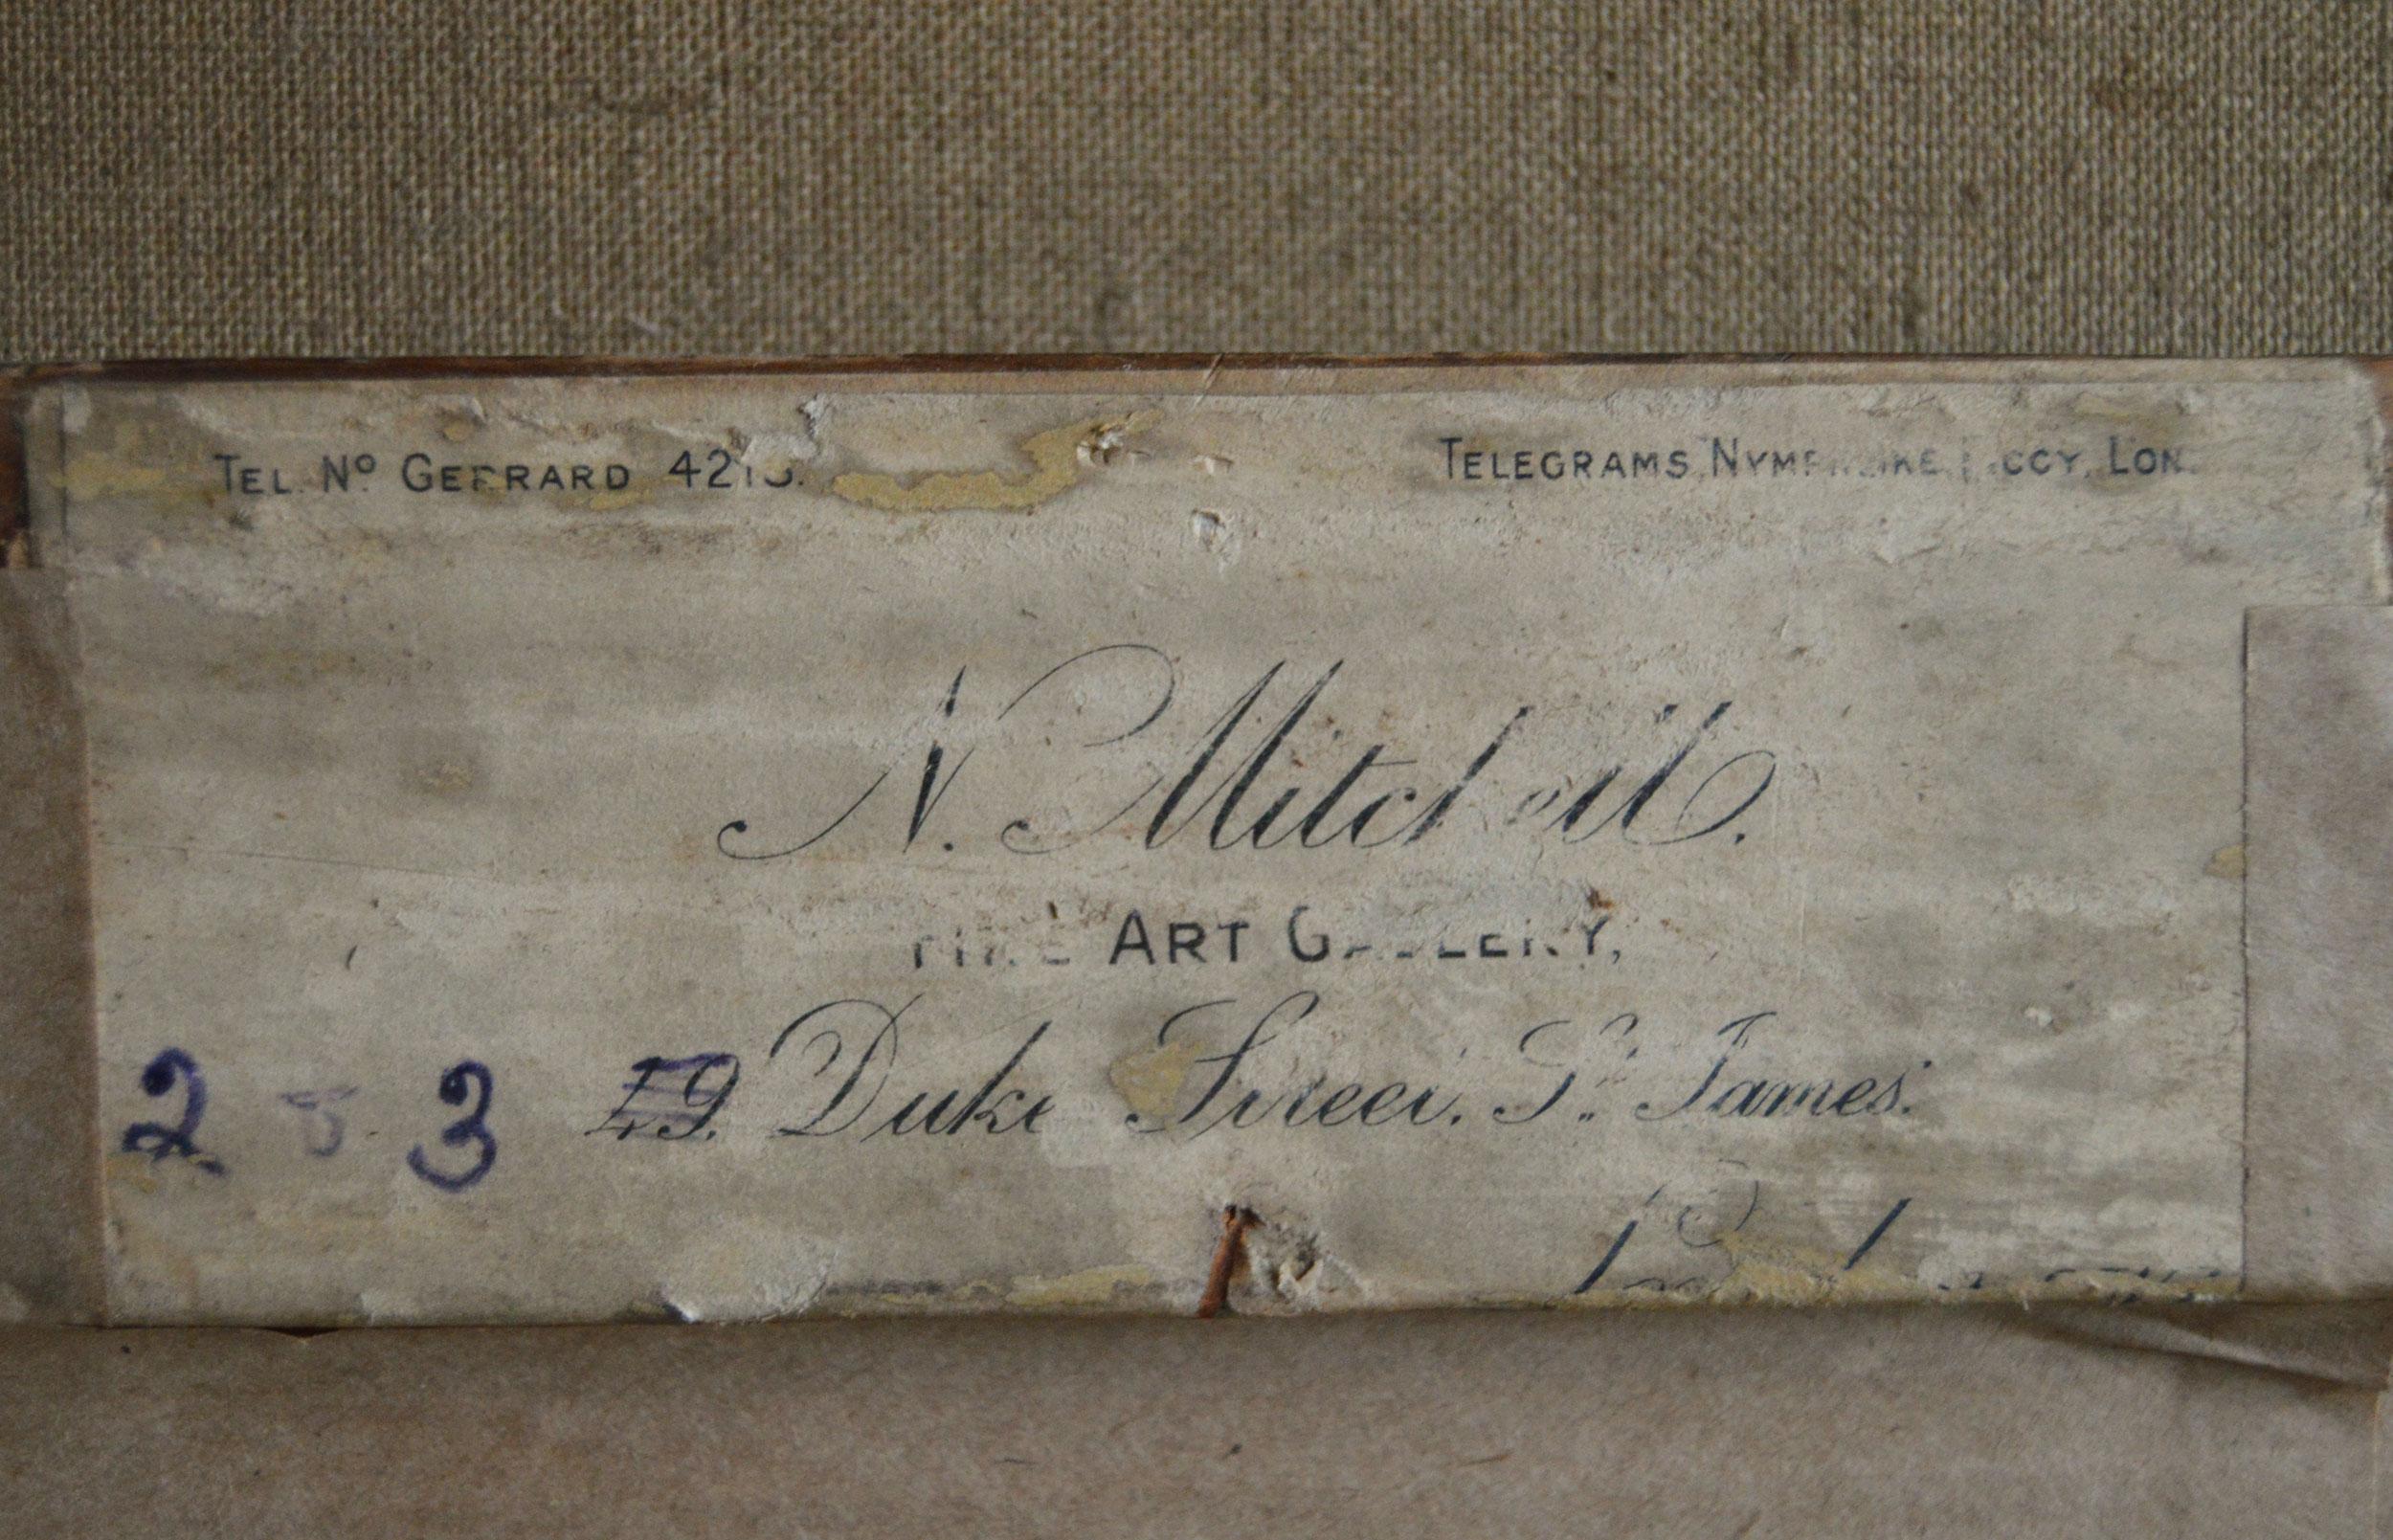 TEL. Nº GERRARD TELEGRAMS, LON.
N. Mitchell.
FINE ART GALLERY,
2 3 49. Duke Street. St. James.